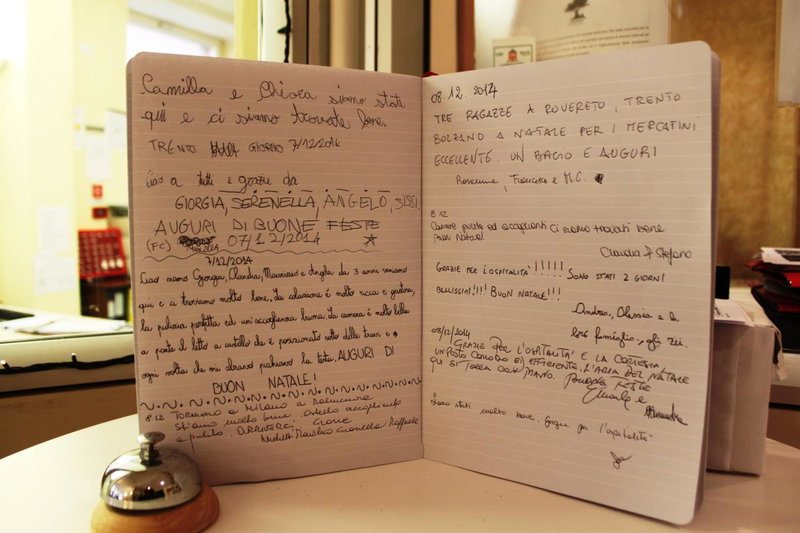 Camilla e Chiara siamo stati
qui e ci siamo trovate bene.
TRENTO GIORNO 7/12/2014
Ciao a tutti e grazie da
GIORGIA, SERENELLA, ANGELO, SISSI.
AUGURI DI BUONE FESTE
(FC) 07/12/2014
7/12/2014
Ciao siamo Giorgia, Claudia, Maurizio e Angela da 3 anni veniamo
qui e ci troviamo molto bene. La colazione è molto ricca e gustosa,
la pulizia perfetta ed un'accoglienza buona. La camera è molto bella
a parte il letto a castello che è posizionato sotto delle travi e
ogni volta che mi alzavo picchiavo la testa. AUGURI DI
BUON NATALE!
8.12 Torniamo a Milano a
Stiamo molto bene. Ostello accogliente
e pulito. Grazie
Raffaele
08.12.2014
TRE RAGAZZE A ROVERETO, TRENTO
BOLZANO A NATALE PER I MERCATINI
ECCELLENTE. UN BACIO E AUGURI
Rosanna, Francesca e M.C.
8.12
Camere pulite ed accoglienti ci siamo trovati bene
Buon Natale!
Claudia e Stefano
GRAZIE PER L'OSPITALITÀ!!!!! SONO STATI 2 GIORNI
BELLISSIMI!!! BUON NATALE!!!
Andrea, Alessia e la
loro famiglia, gli zii.
08/12/2014
GRAZIE PER L'OSPITALITÀ E LA CORTESIA
UN POSTO COMODO ED EFFICIENTE. L'ARIA DEL NATALE
QUI SI TOCCA CON MANO. FESTE
e
Siamo stati molto bene. Grazie per l'ospitalità